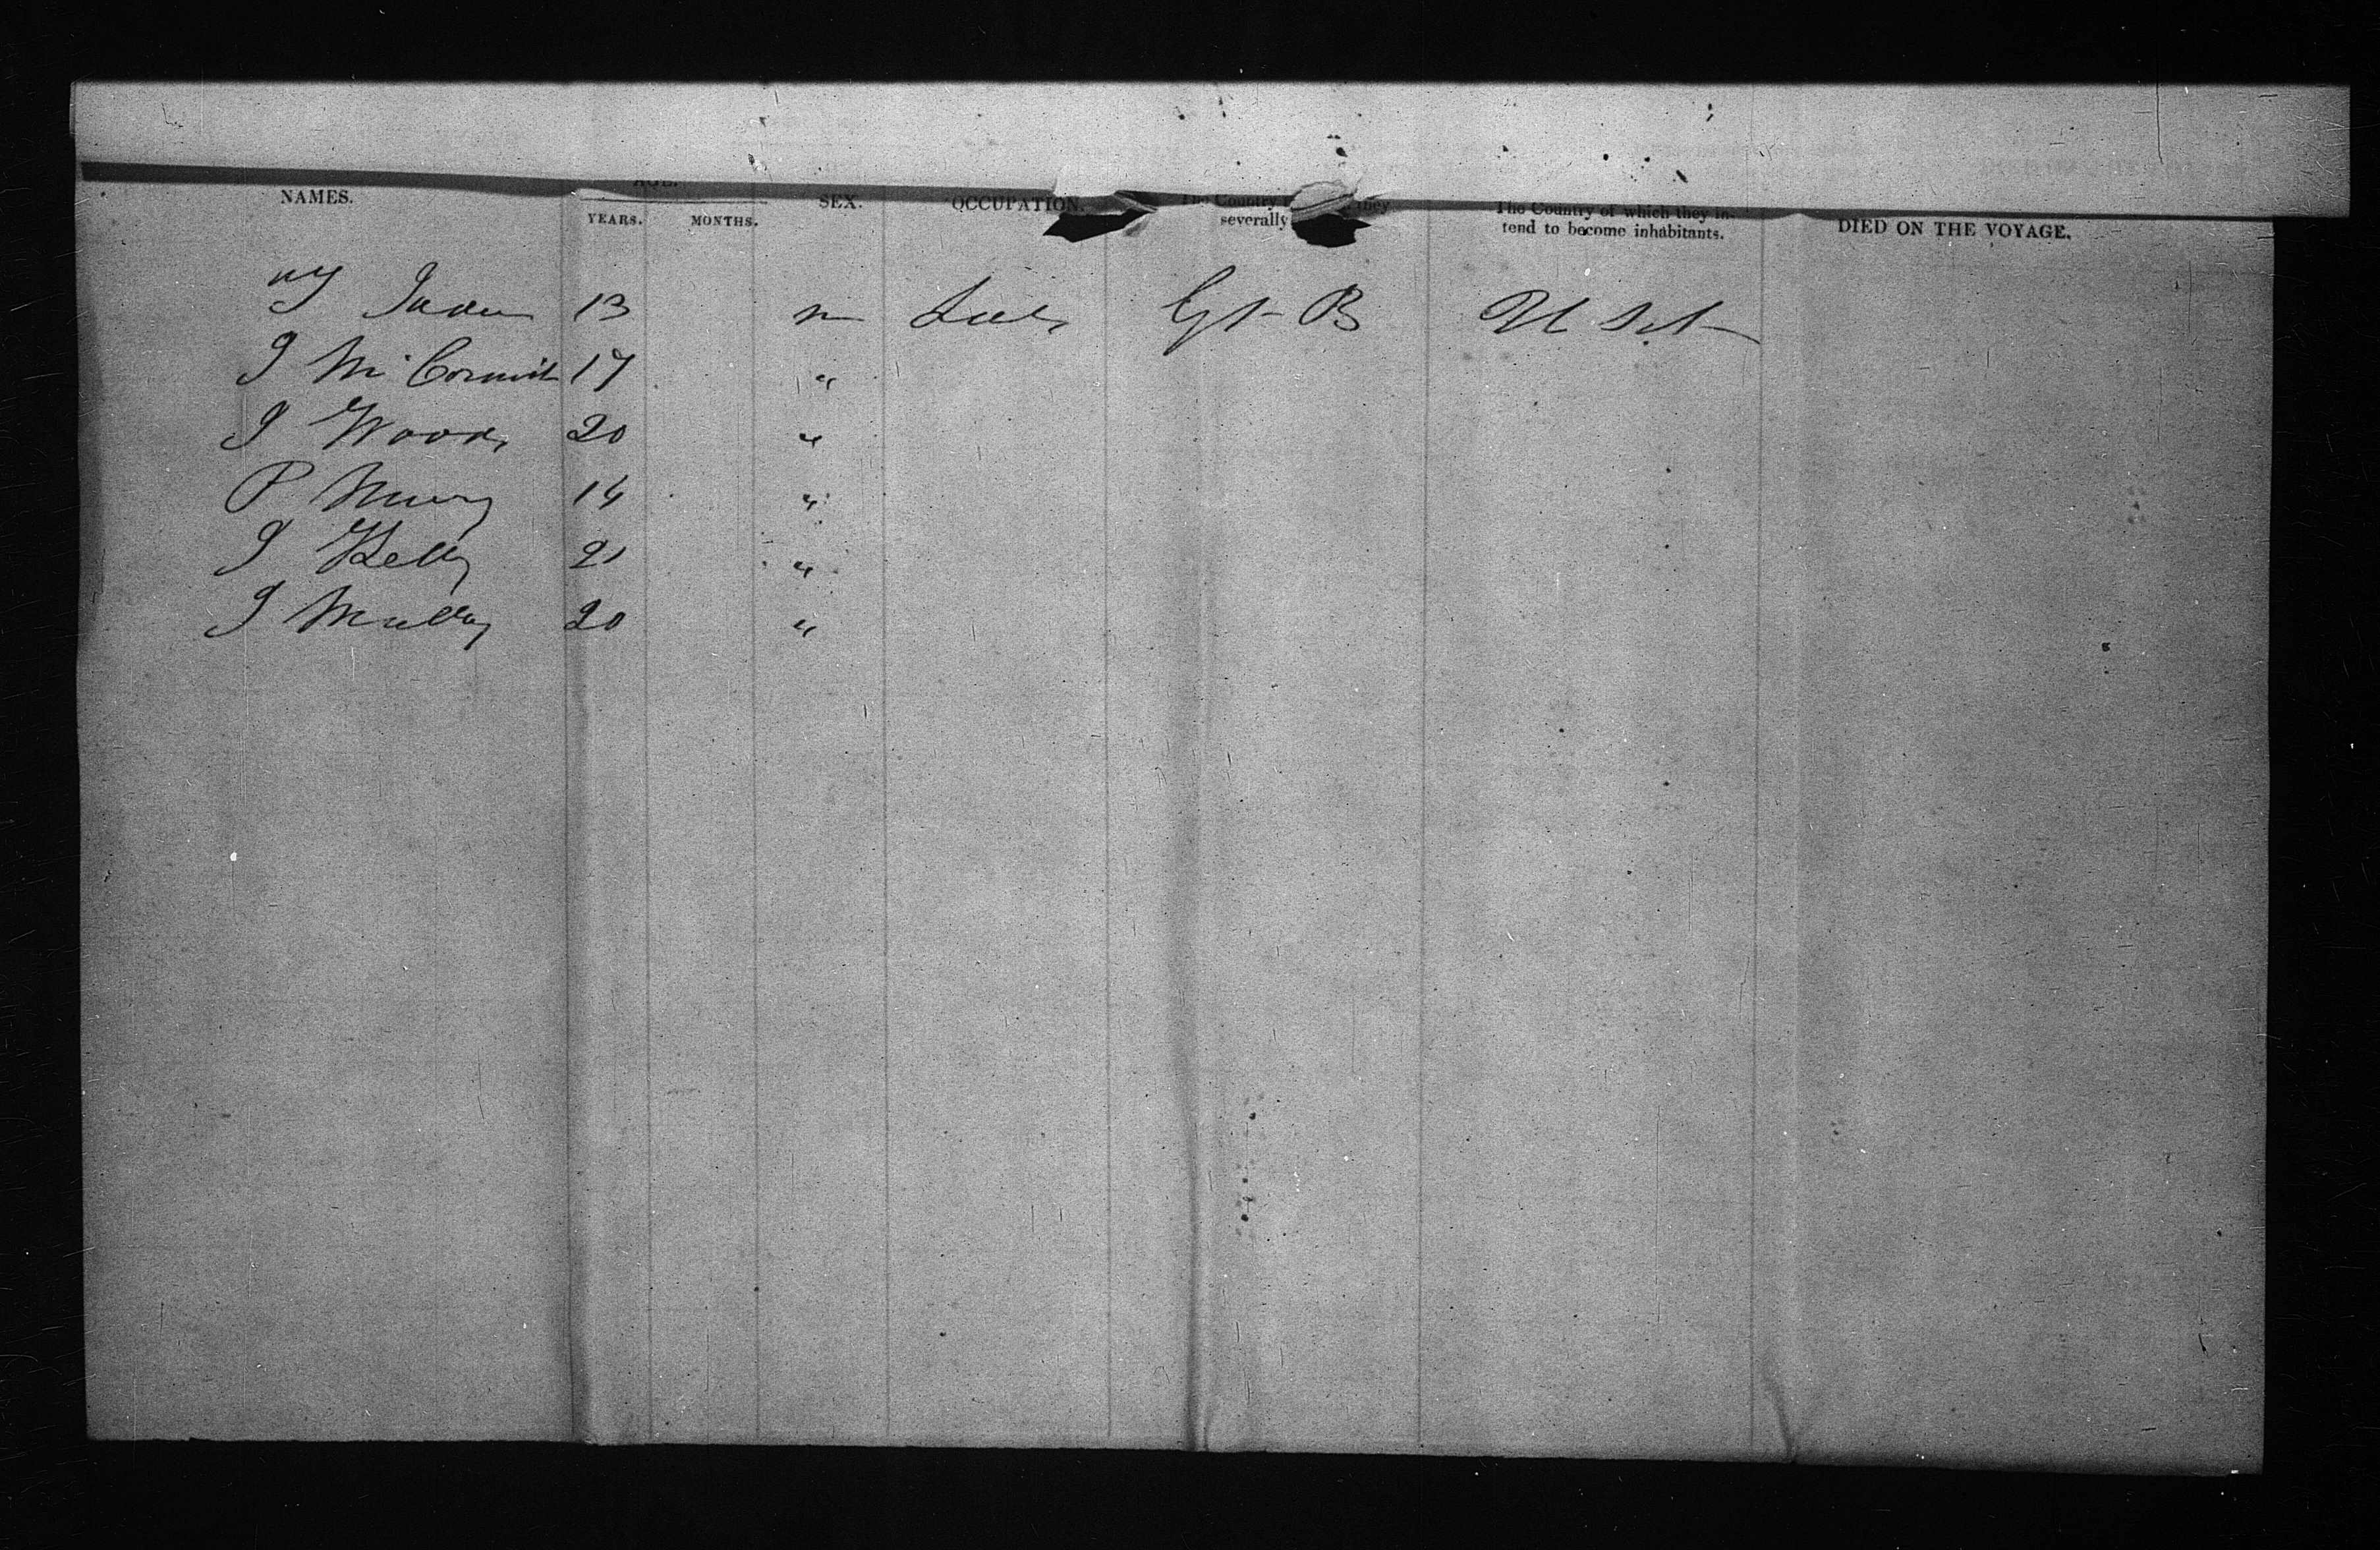 NAMES. AGE. SEX. OCCUPATION. The Country they The Country of which they in- DIED ON THE VOYAGE.
YEARS. MONTHS. severally tend to become inhabitants.
13 m Gt B U St
J McCormick 17 "
J Woods 20 "
P 14 "
J Kelly 21 "
J 20 "